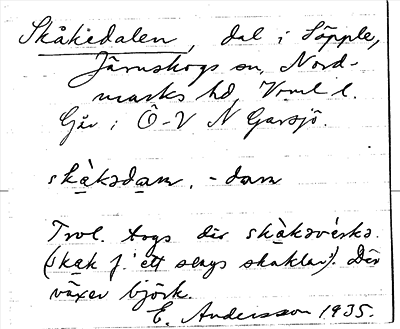 Skåkedalen, dal i Släpple,
Järnskogs sn, Nord-
marks hd, Värml l.
Går i Ö-V N Garsjö.
skàksdam, -dam
Trol. togs där skàksvirke.
(skak f. ett slags skaklar). Där
växer björk.
E. Andersson 1935.